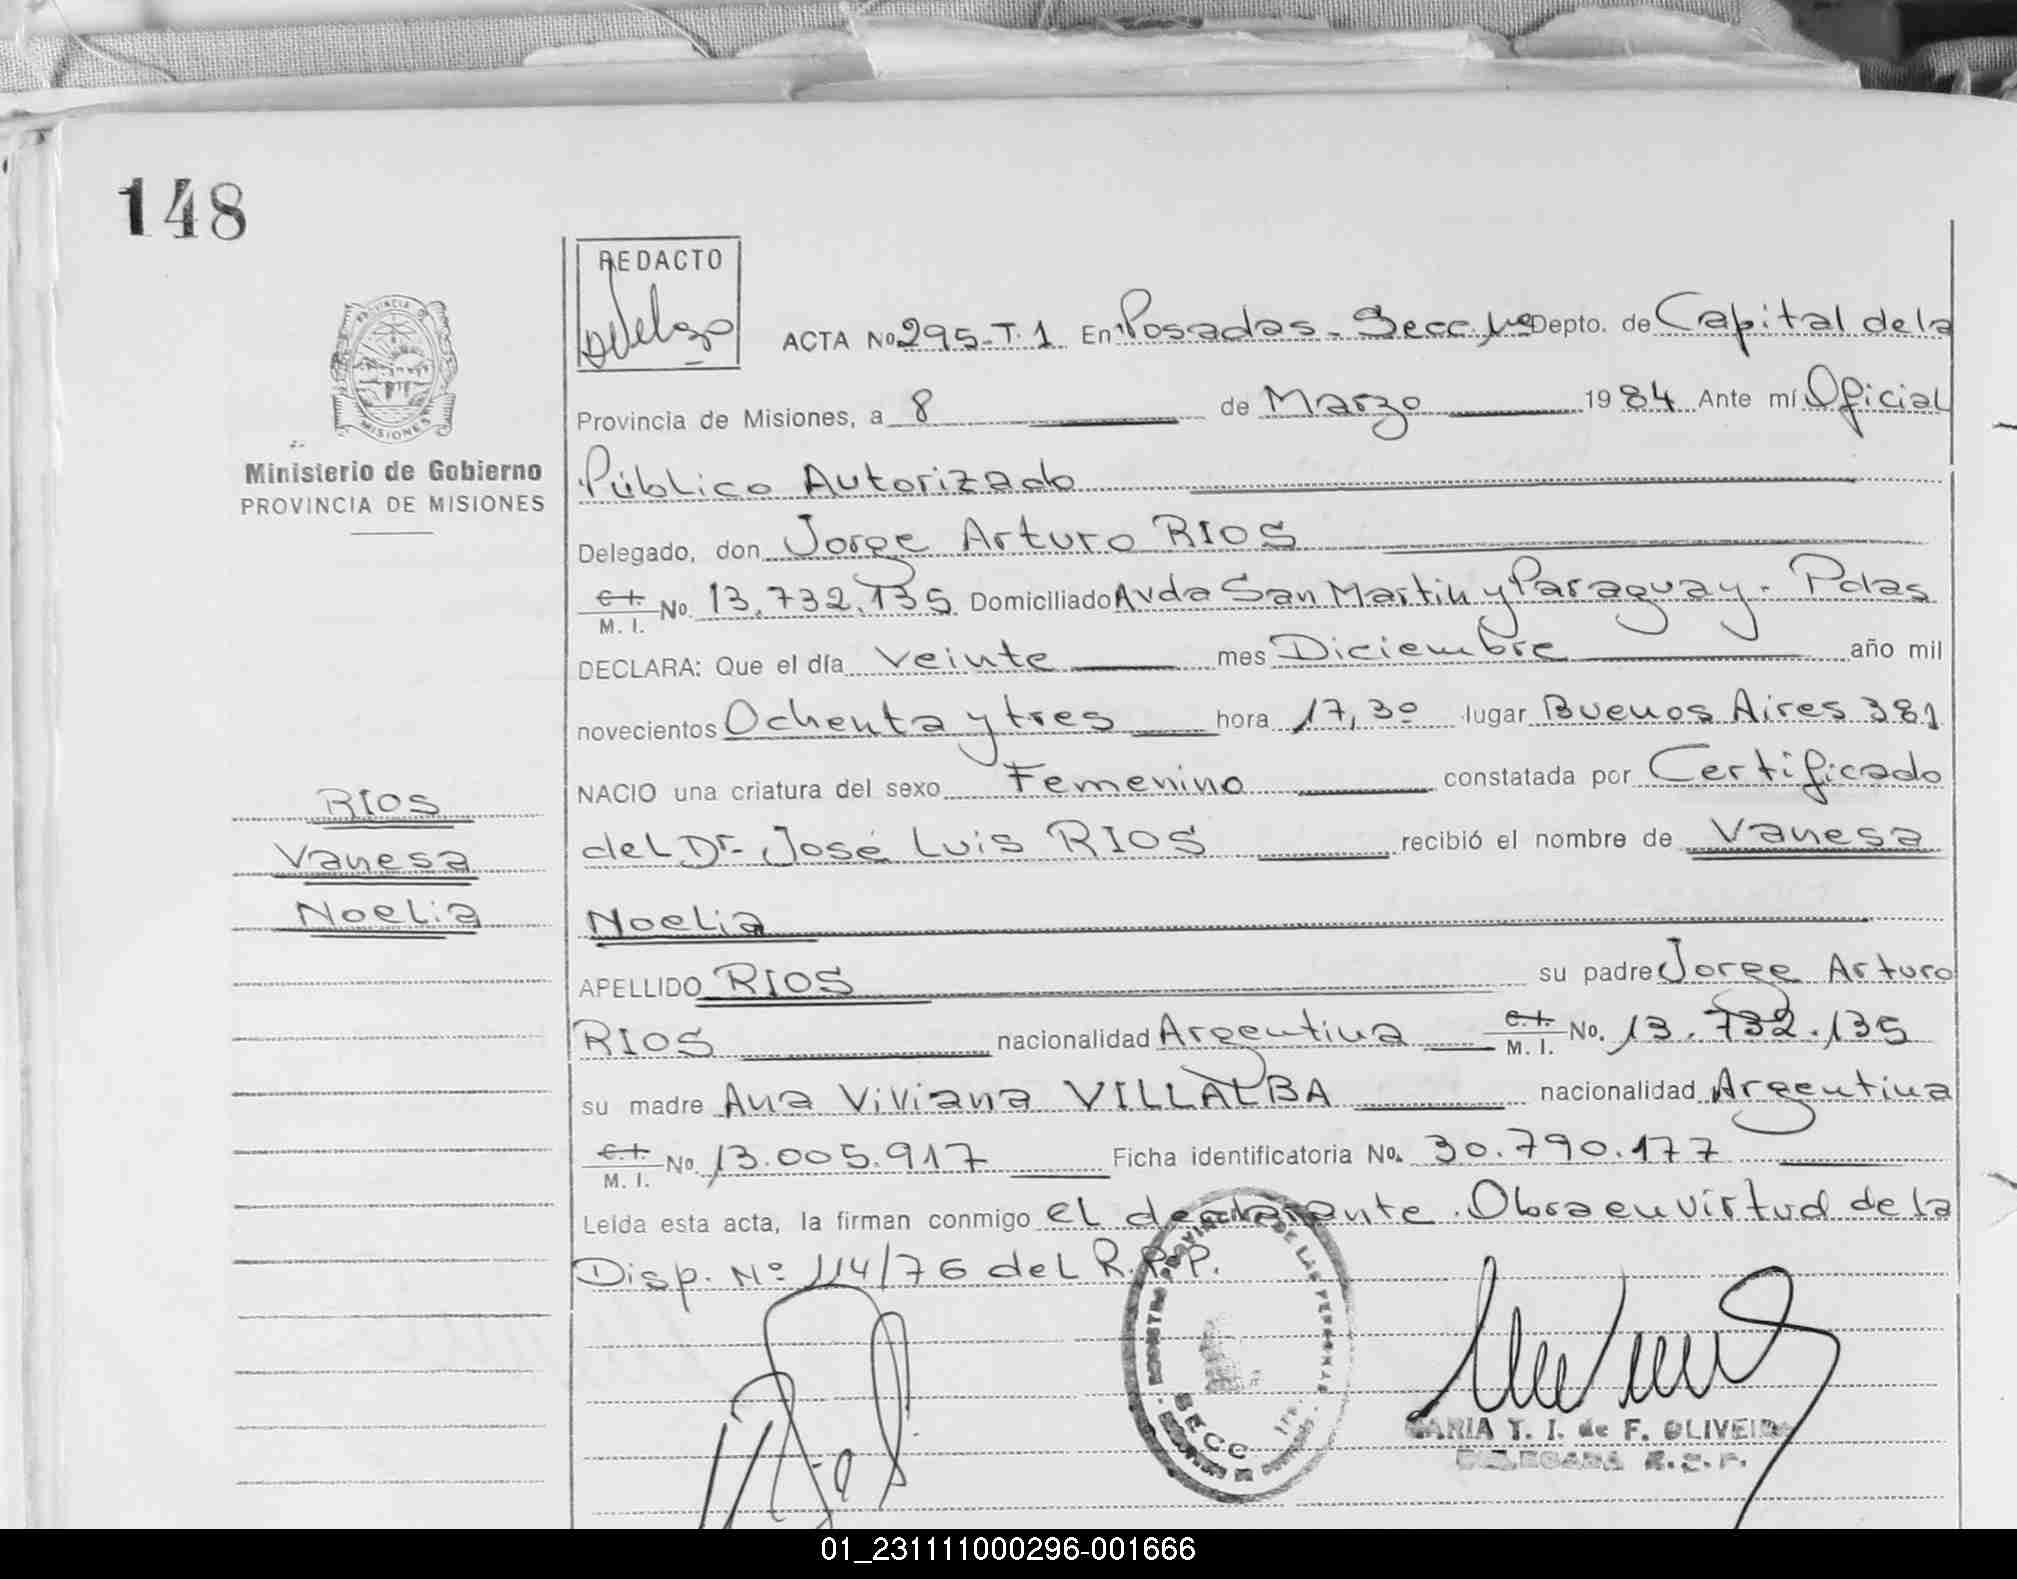 148
REDACTO
PROVINCIA DE
MISIONES
Ministerio de Gobierno
PROVINCIA DE MISIONES
RIOS
Vanesa
Noelia
ACTA No 295-T.1 En Posadas - Secc. 1ra Depto. de Capital de la
Provincia de Misiones, a 8 de Marzo 1984 Ante mí Oficial
Público Autorizado
Delegado, don Jorge Arturo RIOS
C.I. M. I. No. 13.732.135 Domiciliado Avda San Martin y Paraguay - Pdas
DECLARA: Que el día veinte mes Diciembre año mil
novecientos Ochenta y tres hora 17,30 lugar Buenos Aires 381
NACIO una criatura del sexo Femenino constatada por Certificado
del Dr. José Luis RIOS recibió el nombre de Vanesa
Noelia
APELLIDO RIOS su padre Jorge Arturo
RIOS nacionalidad Argentina C.I. M. I. No. 13.732.135
su madre Ana Viviana VILLALBA nacionalidad Argentina
C.I. M. I. No. 13.005.917 Ficha identificatoria No. 30.790.177
Leída esta acta, la firman conmigo el declarante. Obra en virtud de la
Disp. Nº 114/76 del R.P.P.
DE LAS PERSONAS
SECC. 1ra.
MARIA T. I. de F. OLIVEIRA
DELEGADA R.P.P.
01_231111000296-001666